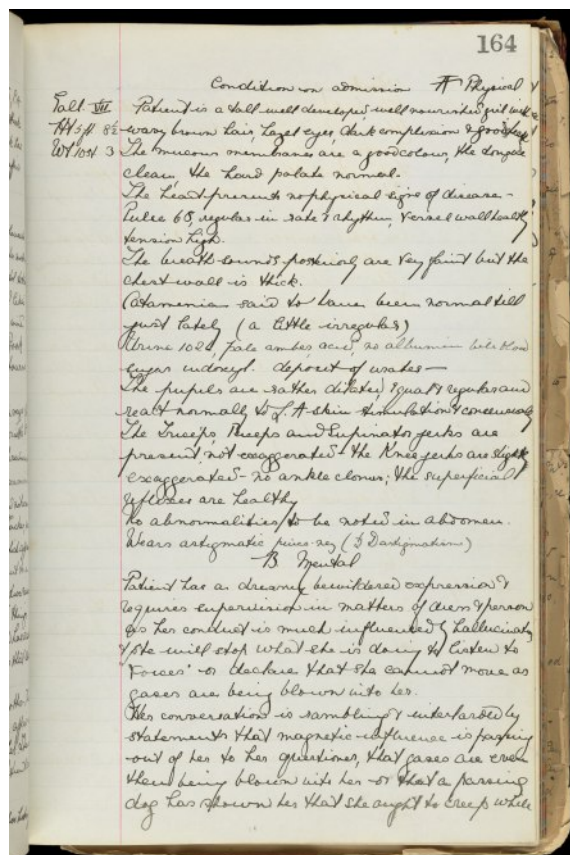 164
Condition on admission A Physical
Tall VII Patient is a tall well developed well nourished girl with
Ht 5ft 8½ wavy brown hair, hazel eyes, dark complexion & good
Wt 10st 3 The mucous membranes are a good colour, the tongue
clean, the hard palate normal.
The heart presents no physical signs of disease -
Pulse 68, regular in rate & rhythm, vessel wall healthy
tension high.
The breath sounds posteriorly are very faint but the
chest wall is thick.
Catamenia said to have been normal till
just lately (a little irregular)
Urine 1024, pale amber, acid, no albumin bile blood
sugar indoxyl. deposit of urates —
The pupils are rather dilated, equal & regular and
react normally to L. A skin stimulation & consensually
The Triceps, Biceps and Supinator jerks are
present, not exaggerated - the Knee jerks are slightly
exaggerated - no ankle clonus; the superficial
reflexes are healthy
No abnormalities to be noted in abdomen.
Wears astigmatic pince-nez
B. Mental
Patient has a dreamy bewildered expression &
requires supervision in matters of dress & person
as her conduct is much influenced by hallucinations
& she will stop what she is doing to listen to
'Forces' or declare that she cannot move as
gases are being blown into her.
Her conversation is rambling & interlarded by
statements that magnetic influence is passing
out of her to her questioner, that gases are even
then being blown into her or that a passing
dog has shown her that she ought to creep while